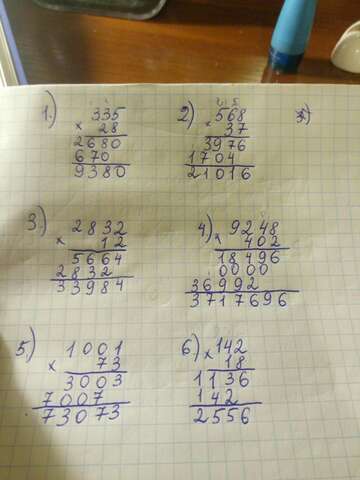 1.) 335
× 28
2680
670
9380
2) 568
× 37
3976
1704
21016
3.) 2832
× 12
5664
2832
33984
4) 9248
× 402
18496
0000
36992
3717696
5.) 1001
× 73
3003
7007
73073
6) × 142
18
1136
142
2556